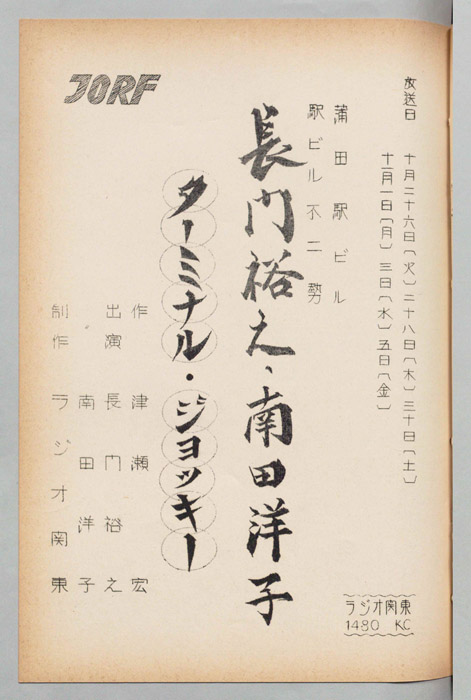 放送日　十月二十六日(火)二十八日(木)三十日(土)
十一月一日(月)三日(水)五日(金)
蒲田駅ビル
駅ビル不二勢
長門裕之、南田洋子
ターミナル・ジョッキー
作　津瀬宏
出演　長門裕之
南田洋子
創作　ラジオ関東
JORF
ラジオ関東
1480 KC